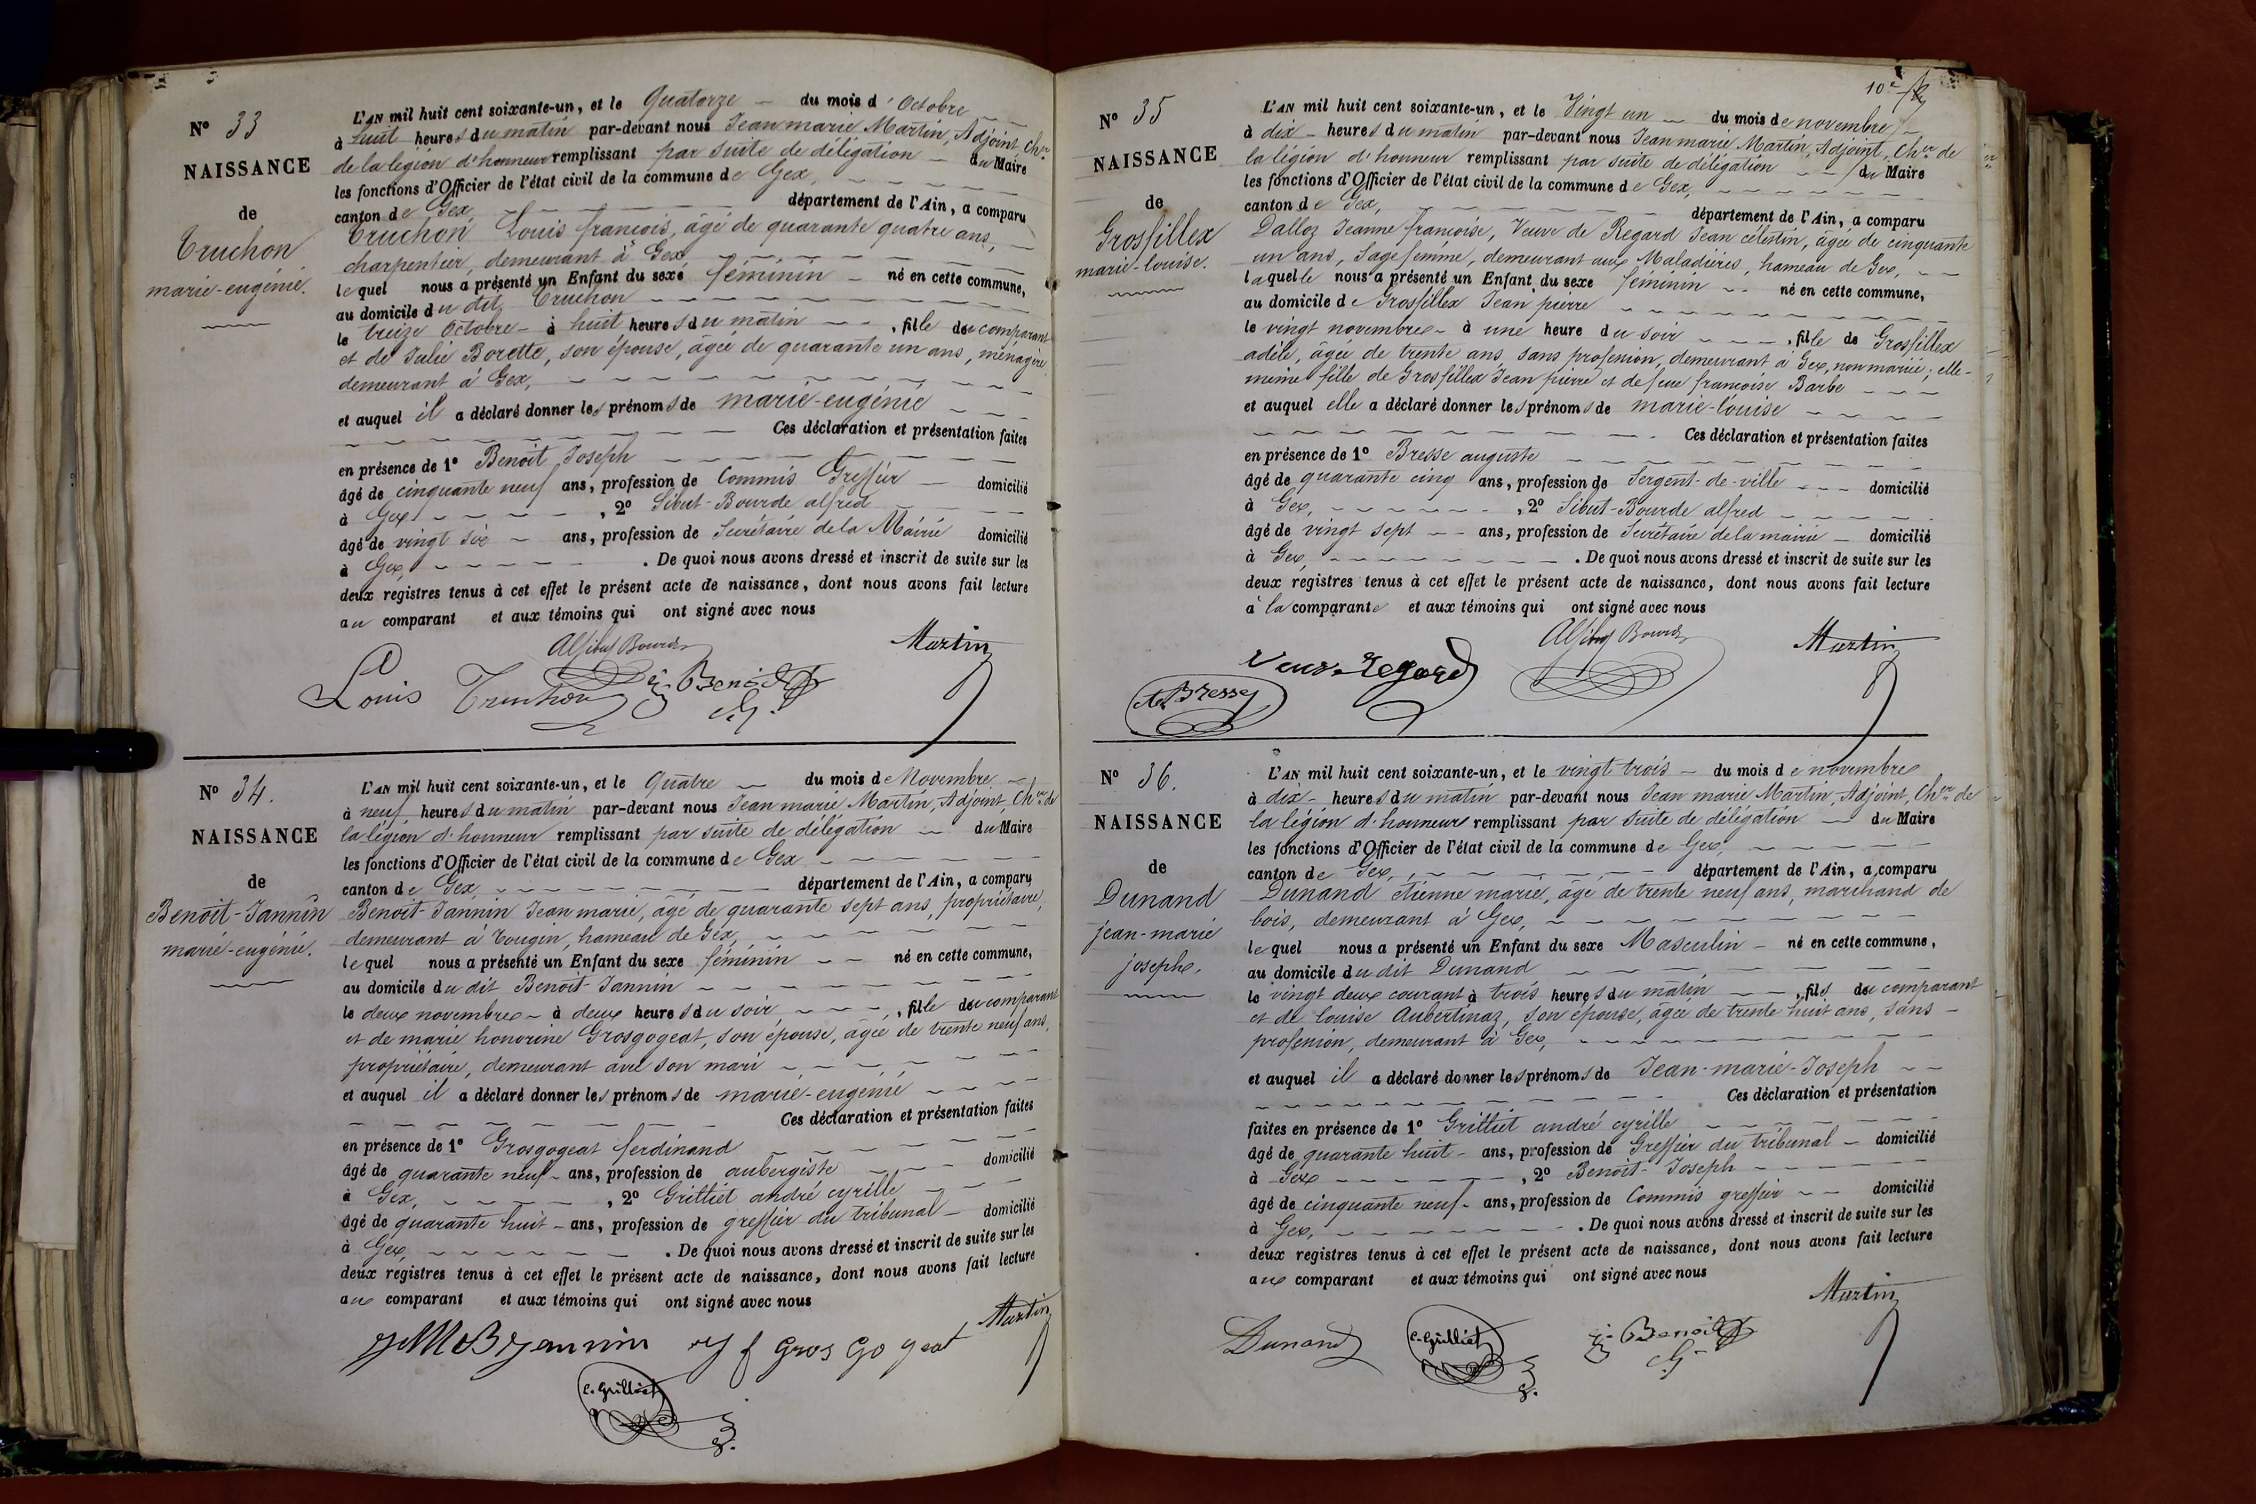 N° 33
NAISSANCE
de
Truchon
marie-eugénie.
L'AN mil huit cent soixante-un, et le Quatorze du mois d'Octobre
à huit heures du matin par-devant nous Jean marie Martin, Adjoint, Chᵉʳ
de la légion d'honneur remplissant par suite de délégation du Maire
les fonctions d'Officier de l'état civil de la commune de Gex,
canton de Gex, département de l'Ain, a comparu
Truchon Louis françois, âgé de quarante quatre ans,
charpentier, demeurant à Gex,
lequel nous a présenté un Enfant du sexe féminin né en cette commune,
au domicile du dit Truchon
le treize Octobre à huit heures du matin, fille du comparant
et de Julie Borette, son épouse, âgée de quarante un ans, ménagère
demeurant à Gex,
et auquel il a déclaré donner les prénoms de marie-eugénie
Ces déclaration et présentation faites
en présence de 1° Benoit Joseph
âgé de cinquante neuf ans, profession de Commis Greffier domicilié
à Gex, 2° Sibut-Bourde alfred
âgé de vingt six ans, profession de Secrétaire de la Mairie domicilié
à Gex, . De quoi nous avons dressé et inscrit de suite sur les
deux registres tenus à cet effet le présent acte de naissance, dont nous avons fait lecture
au comparant et aux témoins qui ont signé avec nous
Al Sibut Bourde Martin
Louis Truchon J. Benoit
N° 34.
NAISSANCE
de
Benoit-Jannin
marie-eugénie.
L'AN mil huit cent soixante-un, et le Quatre du mois de Novembre
à neuf heures du matin par-devant nous Jean marie Martin, Adjoint, Chᵉʳ de
la légion d'honneur remplissant par suite de délégation du Maire
les fonctions d'Officier de l'état civil de la commune de Gex
canton de Gex département de l'Ain, a comparu
Benoit-Jannin Jean marie, âgé de quarante sept ans, propriétaire,
demeurant à Tougin, hameau de Gex,
lequel nous a présenté un Enfant du sexe féminin né en cette commune,
au domicile du dit Benoit-Jannin
le deux novembre à deux heures du soir, fille du comparant
et de marie honorine Grosgogeat, son épouse, âgée de trente neuf ans,
propriétaire, demeurant avec son mari
et auquel il a déclaré donner les prénoms de marie-eugénie
Ces déclaration et présentation faites
en présence de 1° Grosgogeat ferdinand
âgé de quarante neuf ans, profession de aubergiste domicilié
à Gex, 2° Grilliet andré cyrille
âgé de quarante huit ans, profession de greffier du tribunal domicilié
à Gex, . De quoi nous avons dressé et inscrit de suite sur les
deux registres tenus à cet effet le présent acte de naissance, dont nous avons fait lecture
aux comparant et aux témoins qui ont signé avec nous
Martin
JM B Jannin f gros go geat
C. Grilliet
102
N° 35
NAISSANCE
de
Grosfillex
marie-louise.
L'AN mil huit cent soixante-un, et le Vingt un du mois de novembre
à dix heures du matin par-devant nous Jean marie Martin, Adjoint, Chᵉʳ de
la légion d'honneur remplissant par suite de délégation du Maire
les fonctions d'Officier de l'état civil de la commune de Gex,
canton de Gex, département de l'Ain, a comparu
Dalloz Jeanne françoise, Veuve de Regard Jean célestin, âgée de cinquante
un ans, Sagefemme, demeurant aux Maladières, hameau de Gex,
laquelle nous a présenté un Enfant du sexe féminin né en cette commune,
au domicile de Grosfillex Jean pierre
le vingt novembre à une heure du soir, fille de Grosfillex
adèle, âgée de trente ans sans profession, demeurant à Gex, non mariée; elle-
même fille de Grosfillex Jean pierre et de feue françoise Barbe
et auquel elle a déclaré donner les prénoms de marie-louise
Ces déclaration et présentation faites
en présence de 1° Bresse auguste
âgé de quarante cinq ans, profession de Sergent-de-ville domicilié
à Gex, 2° Sibut-Bourde alfred
âgé de vingt sept ans, profession de Secrétaire de la mairie domicilié
à Gex, . De quoi nous avons dressé et inscrit de suite sur les
deux registres tenus à cet effet le présent acte de naissance, dont nous avons fait lecture
à la comparante et aux témoins qui ont signé avec nous
Al Sibut Bourde Martin
Veuve Regard
A Bresse
N° 36.
NAISSANCE
de
Dunand
jean-marie
joseph.
L'AN mil huit cent soixante-un, et le vingt trois du mois de novembre
à dix heures du matin par-devant nous Jean marie Martin, Adjoint, Chᵉʳ de
la légion d'honneur remplissant par suite de délégation du Maire
les fonctions d'Officier de l'état civil de la commune de Gex,
canton de Gex, département de l'Ain, a comparu
Dunand étienne marie, âgé de trente neuf ans, marchand de
bois, demeurant à Gex,
lequel nous a présenté un Enfant du sexe Masculin né en cette commune,
au domicile du dit Dunand
le vingt deux courant à trois heures du matin, fils du comparant
et de louise Aubertinaz, son épouse, âgée de trente huit ans, sans
profession, demeurant à Gex,
et auquel il a déclaré donner les prénoms de Jean-marie-Joseph
Ces déclaration et présentation
faites en présence de 1° Grilliet andré cyrille
âgé de quarante huit ans, profession de Greffier du tribunal domicilié
à Gex, 2° Benoit Joseph
âgé de cinquante neuf ans, profession de Commis greffier domicilié
à Gex, . De quoi nous avons dressé et inscrit de suite sur les
deux registres tenus à cet effet le présent acte de naissance, dont nous avons fait lecture
aux comparant et aux témoins qui ont signé avec nous
Martin
Dunand C. Grilliet J. Benoit